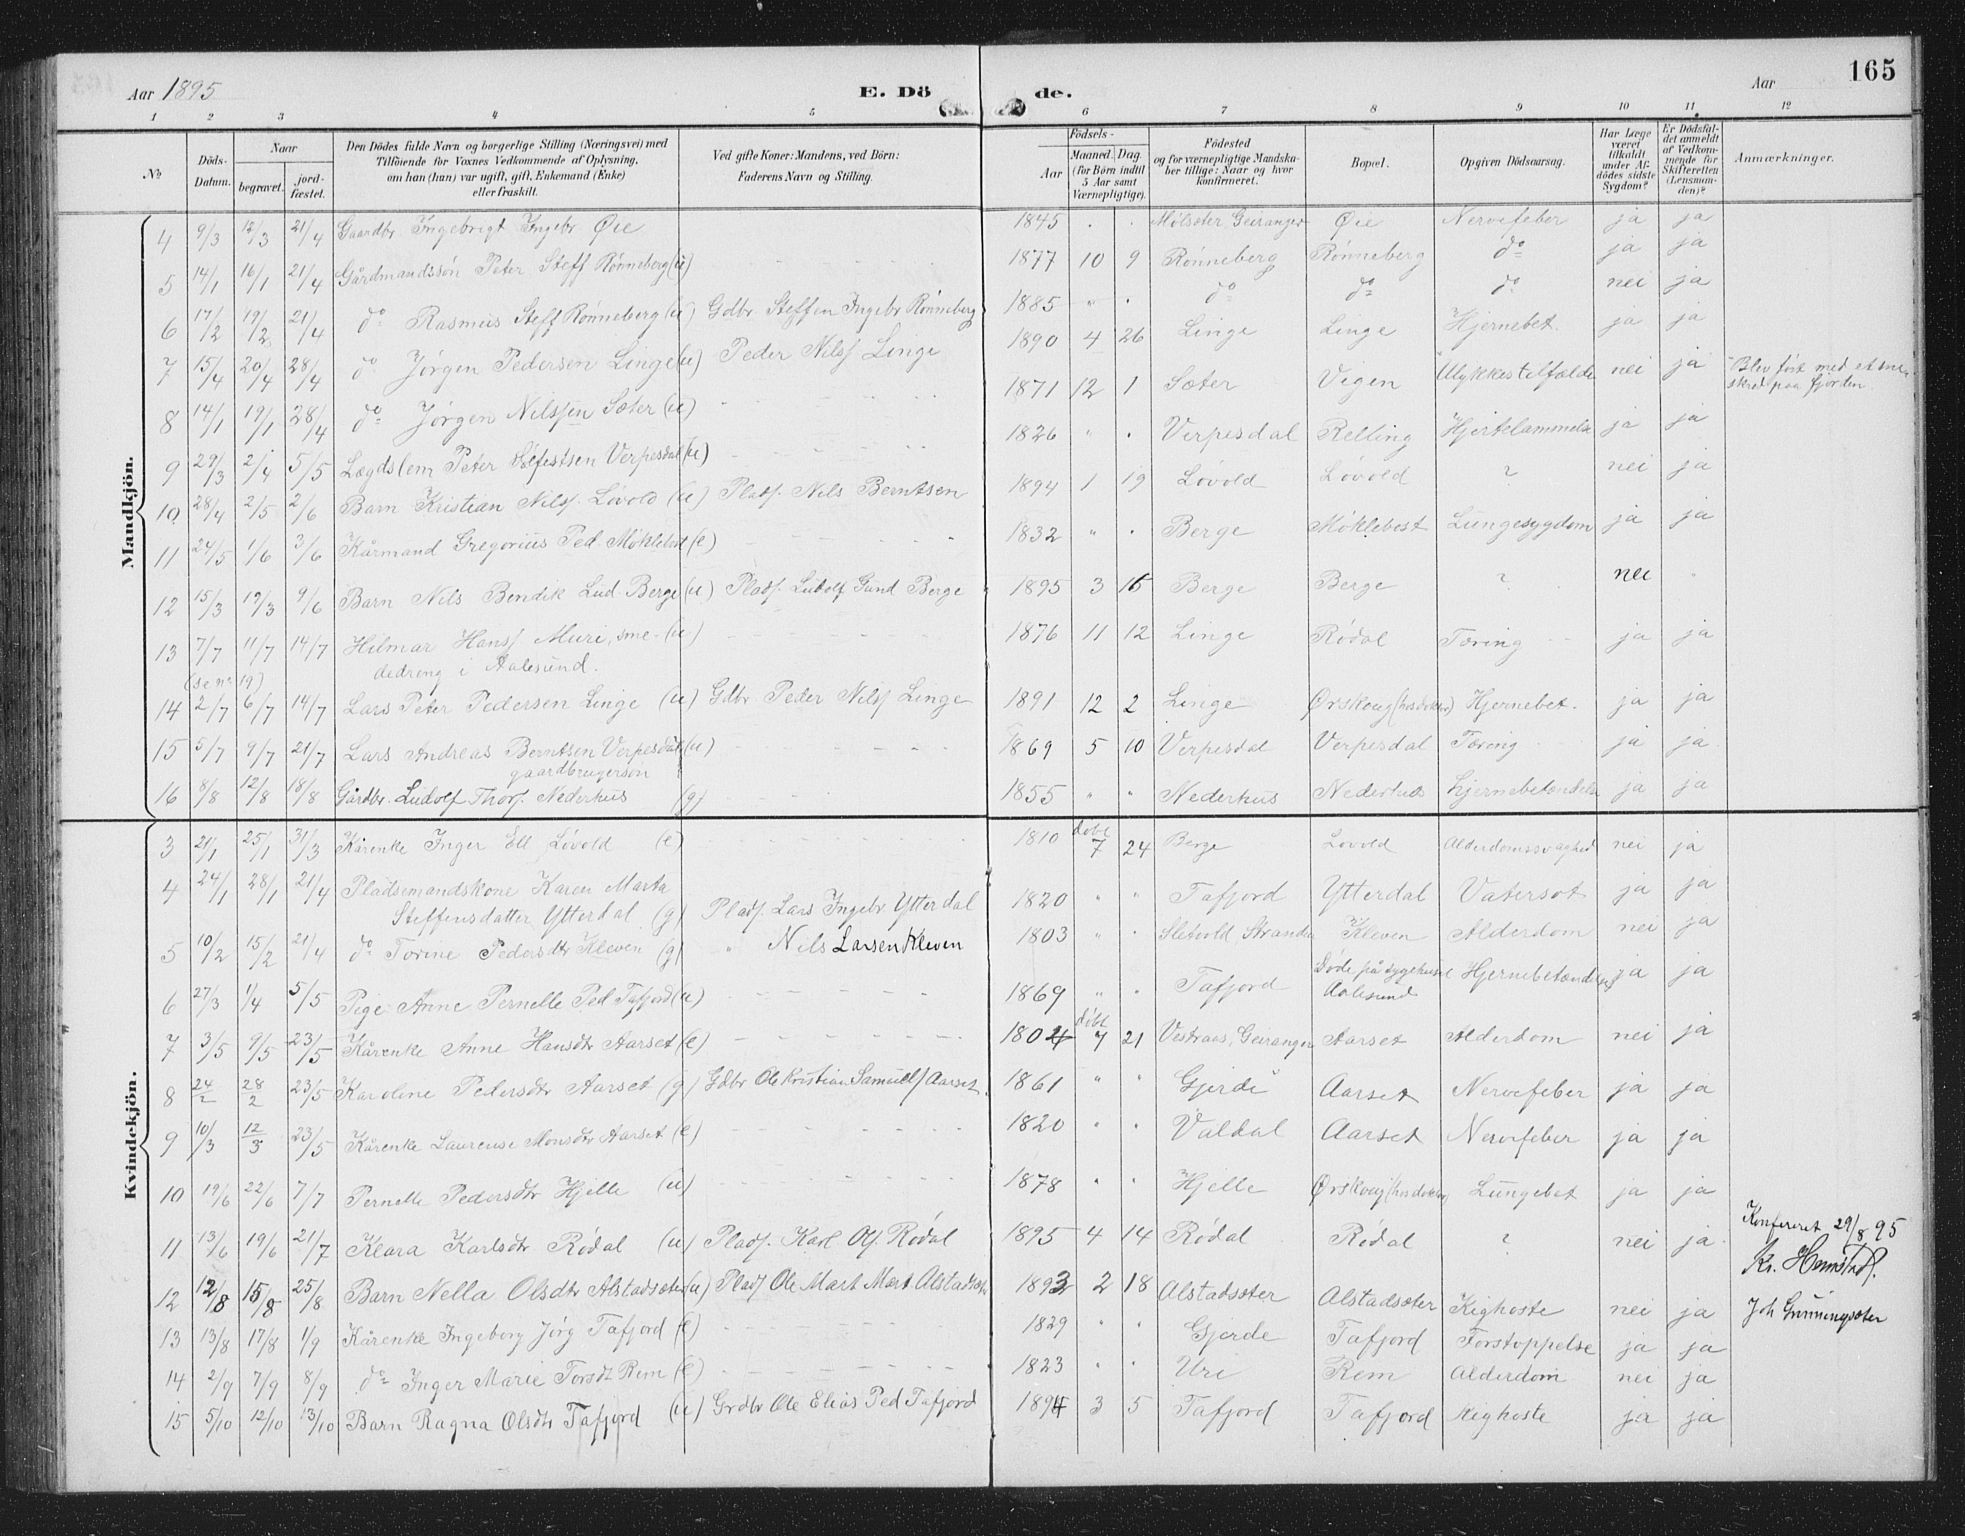 Aar 1895
E. Dö de.
Aar
165
1 2 3 4 5 6 7 8 9 10 11 12
No
Döds-Datum.
Naar
begravet.
jord-fæstet.
Den Dödes fulde Navn og borgerlige Stilling (Næringsvei) med
Tilföiende for Voxnes Vedkommende af Oplysning,
om han (hun) var ugift, gift, Enkemand (Enke)
eller fraskilt.
Ved gifte Koner: Mandens, ved Börn:
Faderens Navn og Stilling.
Födsels-
Aar
Maaned. Dag
(for Börn indtil
5 Aar samt
Værnepligtige).
Födested
og for værnepligtige Mandska-
ber tillige: Naar og hvor
konfirmeret.
Bopæl.
Opgiven Dödsaarsag.
Har Læge
været
tilkaldt
under Af-
dödes sidste
Sygdom?
Er Dödsfal-
det anmeldt
af Vedkom-
mende for
Skifteretten
(Lensman-
den)?
Anmærkninger.
Mandkjön.
4 9/3 12/3 21/4 Gaardbr Ingebrigt Ingebr Øie 1845 Mølsæter Geiranger Øie Nervefeber ja ja
5 14/1 16/1 21/4 Gårdmandssøn Peter Steff Rønneberg (u) 1877 10 9 Rønneberg Rønneberg do ja ja
6 17/2 19/2 21/4 do Rasmus Steff Rønneberg (u) Gdbr. Steffen Ingebr Rønneberg 1885 " do do do nei ja
7 15/4 20/4 28/4 do Jørgen Pedersen Linge (u) Peder Nilsf Linge 1890 4 26 Linge Linge Hjernebet. ja ja
8 14/1 19/1 28/4 do Jørgen Nilssen Sæter (u) 1871 12 1 Sæter Vegen Ulykkestilfælde nei ja Blev ført med et sne-
skred paa fjorden
9 29/3 2/4 5/5 Lægdslem Peter Sølfestsen Verpesdal (u) 1826 " Verpesdal Relling Hjertelammelse ja ja
10 28/4 2/5 2/6 Barn Kristian Nilsf. Løvold (u) Pladsf. Nils Berntsen 1894 1 19 Løvold Løvold ? nei ja
11 24/5 1/6 3/6 Kårmand Gregorius Ped. Møklebst (e) 1832 " Berge Møklebost Lungesygdom ja ja
12 15/3 19/3 9/6 Barn Nils Bendik Lud. Berge (u) Pladsf. Ludolf Gund Berge 1895 3 15 Berge Berge ? nei
13 7/7 11/7 14/7 Hilmar Hansf Muri, sme- (u) 1876 11 12 Linge Rødal Tæring ja ja
dedreng i Aalesund.
(se nr 19)
14 2/7 6/7 14/7 Lars Peter Pedersen Linge (u) Gdbr. Peder Nilsf Linge 1891 12 2 Linge Ørskoug (hos doktor) Hjernebet. ja ja
15 5/7 9/7 21/7 Lars Andreas Berntsen Verpesdal (u) 1869 5 10 Verpesdal Verpesdal Tæring ja ja
gaardbrugersøn
16 8/8 12/8 18/8 Gårdbr. Ludolf Thorsf. Nederhus (g) 1855 " " Nederhus Nederhus Hjernebetændelse ja ja
Kvindekjön.
3 21/1 25/1 31/3 Kårenke Inger Ell Løvold (e) 1810 døbt 7 24 Berge Løvold Alderdomssvaghed nei ja
4 24/1 28/1 21/4 Pladsemandskone Karen Marta
Steffensdatter Ytterdal (g) Pladsf. Lars Ingebr Ytterdal 1820 " " Tafjord Ytterdal Vatersot ja ja
5 10/2 15/2 21/4 do Torine Pedersdtr Kleven (g) " Nils Larsen Kleven 1803 " Sletvold Stranden Kleven Alderdom nei ja
6 27/3 1/4 5/5 Pige Anne Pernelle Ped Tafjord (u) 1869 " " Tafjord Døde på sygehuset
Aalesund Hjernebetændelse ja ja
7 3/5 9/5 23/5 Kårenke Anne Hansdtr Aarset (e) 1804 døbt 7 21 Vestraas, Geiranger Aarset Alderdom nei ja
8 24/2 28/2 23/5 Karoline Pedersdtr Aarset (g) Gdbr Ole Kristian Samuelsf Aarset 1861 " " Gjerde Aarset Nervefeber ja ja
9 10/3 12/3 23/5 Kårenke Laurense Monsdtr Aarset (e) 1820 Valdal Aarset Nervefeber ja ja
10 19/6 22/6 7/7 Pernelle Pedersdtr Hjelle (u) 1878 " " Hjelle Ørskoug (hos doktor) Lungebet ja ja
11 13/6 19/6 21/7 Klara Karlsdtr Rødal (u) Pladsf. Karl Olsf. Rødal 1895 4 14 Rødal Rødal ? nei ja
Konfereret 29/8 95
Kr. Hemstad.
12 12/8 15/8 25/8 Barn Nella Olsdtr Alstadsæter (u) Pladsf Ole Mart Mart Alstadsæter 1893 2 18 Alstadsæter Alstadsæter Kighoste nei ja Joh Grønningsæter
13 13/8 17/8 1/9 Kårenke Ingeborg Jørg Tafjord (e) 1829 " " Gjerde Tafjord Forstoppelse ja ja
14 2/9 7/9 8/9 do Inger Marie Torsdt Rem (e) 1823 " " Uri Rem Alderdom nei ja
15 5/10 12/10 13/10 Barn Ragna Olsdtr Tafjord (u) Grdbr Ole Elias Ped Tafjord 1894 3 5 Tafjord Tafjord Kighoste ja ja